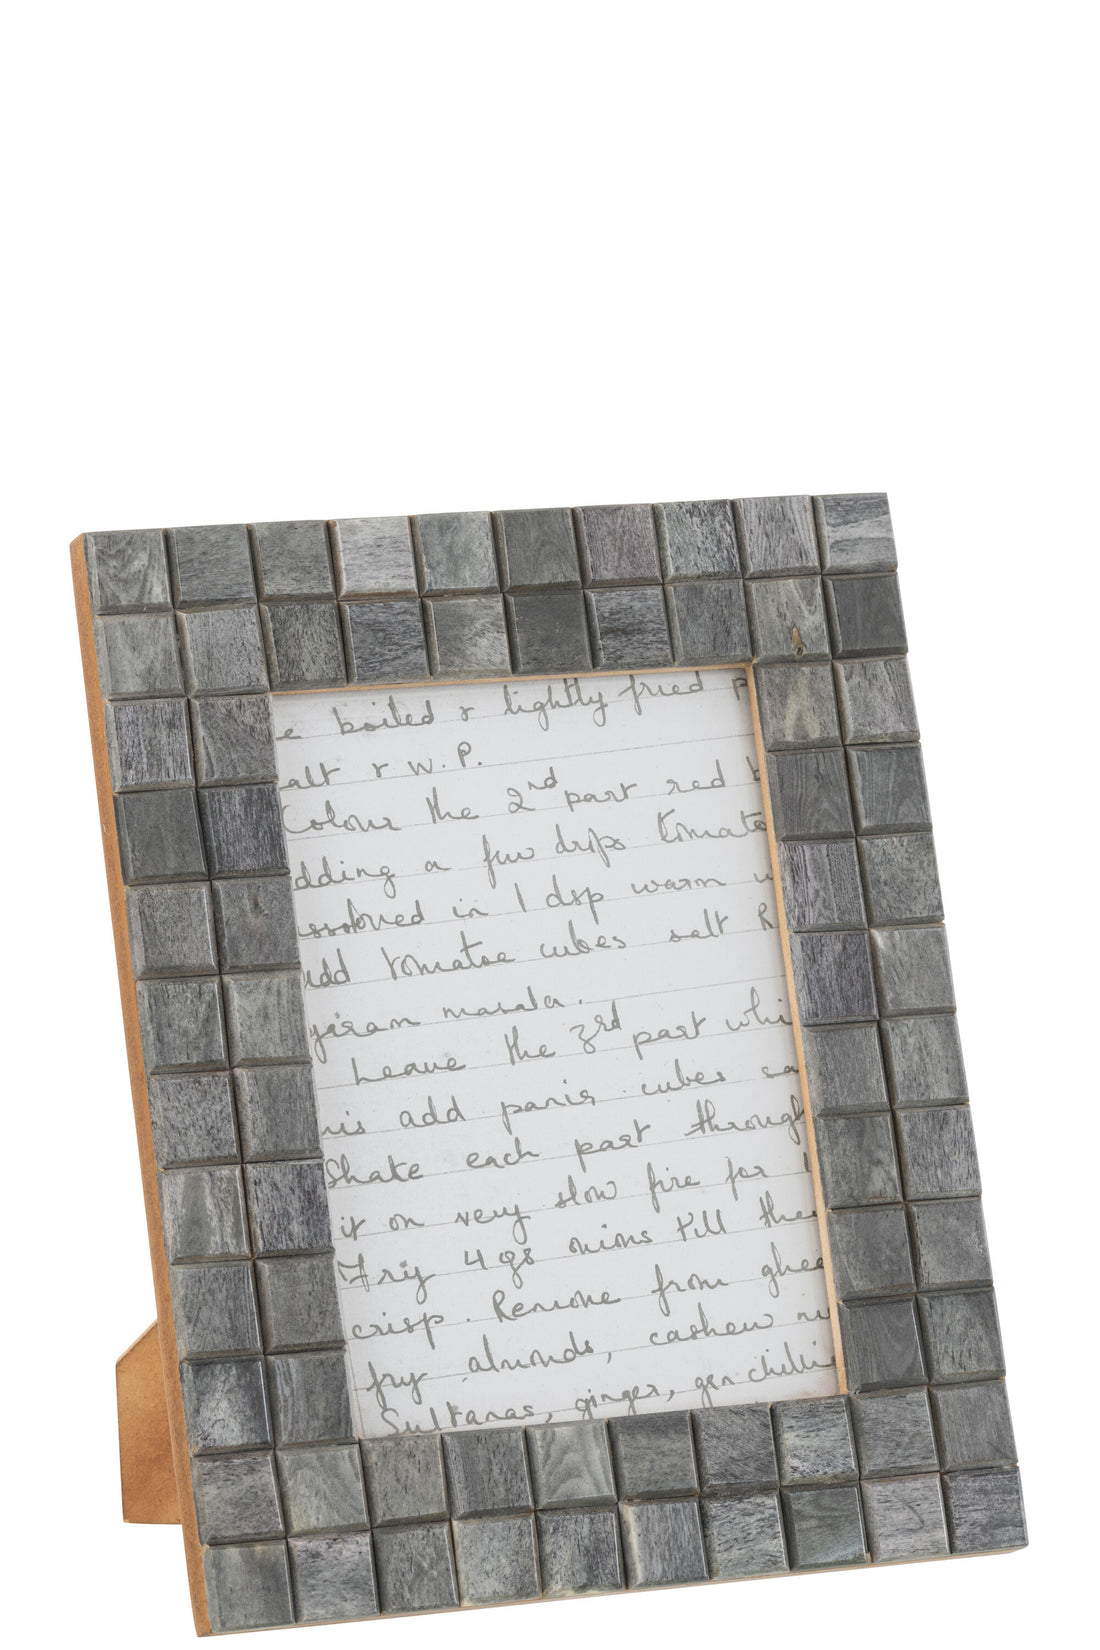 e boiled & lightly fried p
alt & W.P.
Colour the 2nd part red b
dding a few drips tomato
ssolved in 1 dsp warm w
add tomatoe cubes salt R
giram masala.
Leave the 3rd part whi
is add panir cubes sa
Shake each part through
it on very slow fire for 1
Fry 4 gs onions till the
crisp. Remove from ghee
fry almonds, cashew nu
Sultanas, ginger, gen chilli